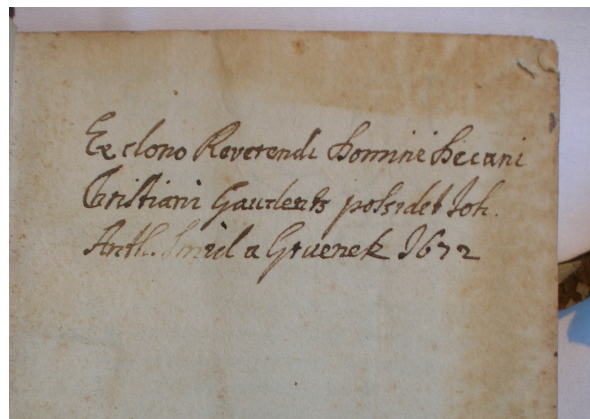 Ex dono Reverendi Domini Decani
Cristiani Gaudents possidet Joh.
Anth. Smid a Gruenek 1672